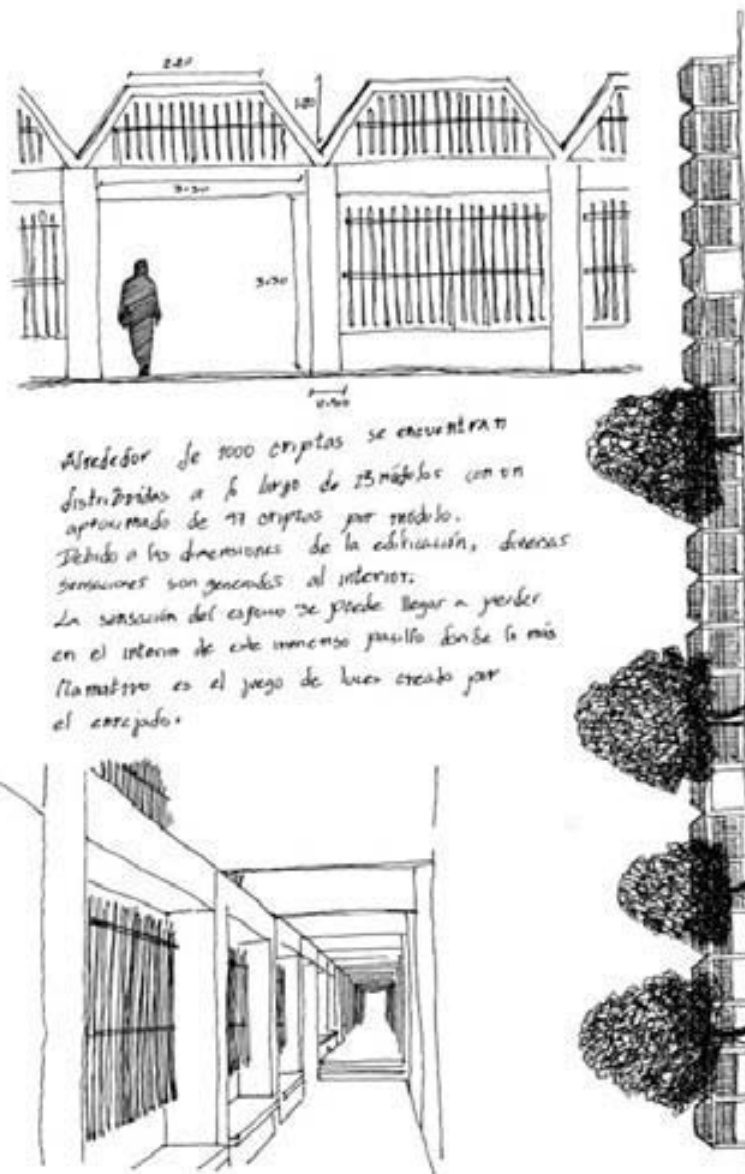 2.20
1.20
3.30
3.30
Alrededor de 1000 criptas se encuentran
distribuidas a lo largo de 23 módulos con un
aproximado de criptas por módulo.
Debido a las dimensiones de la edificación, diversas
sensaciones son generadas al interior.
La sensación del espacio se puede llegar a perder
en el interior de este inmenso pasillo donde lo más
llamativo es el juego de luces creado por
el enrejado.